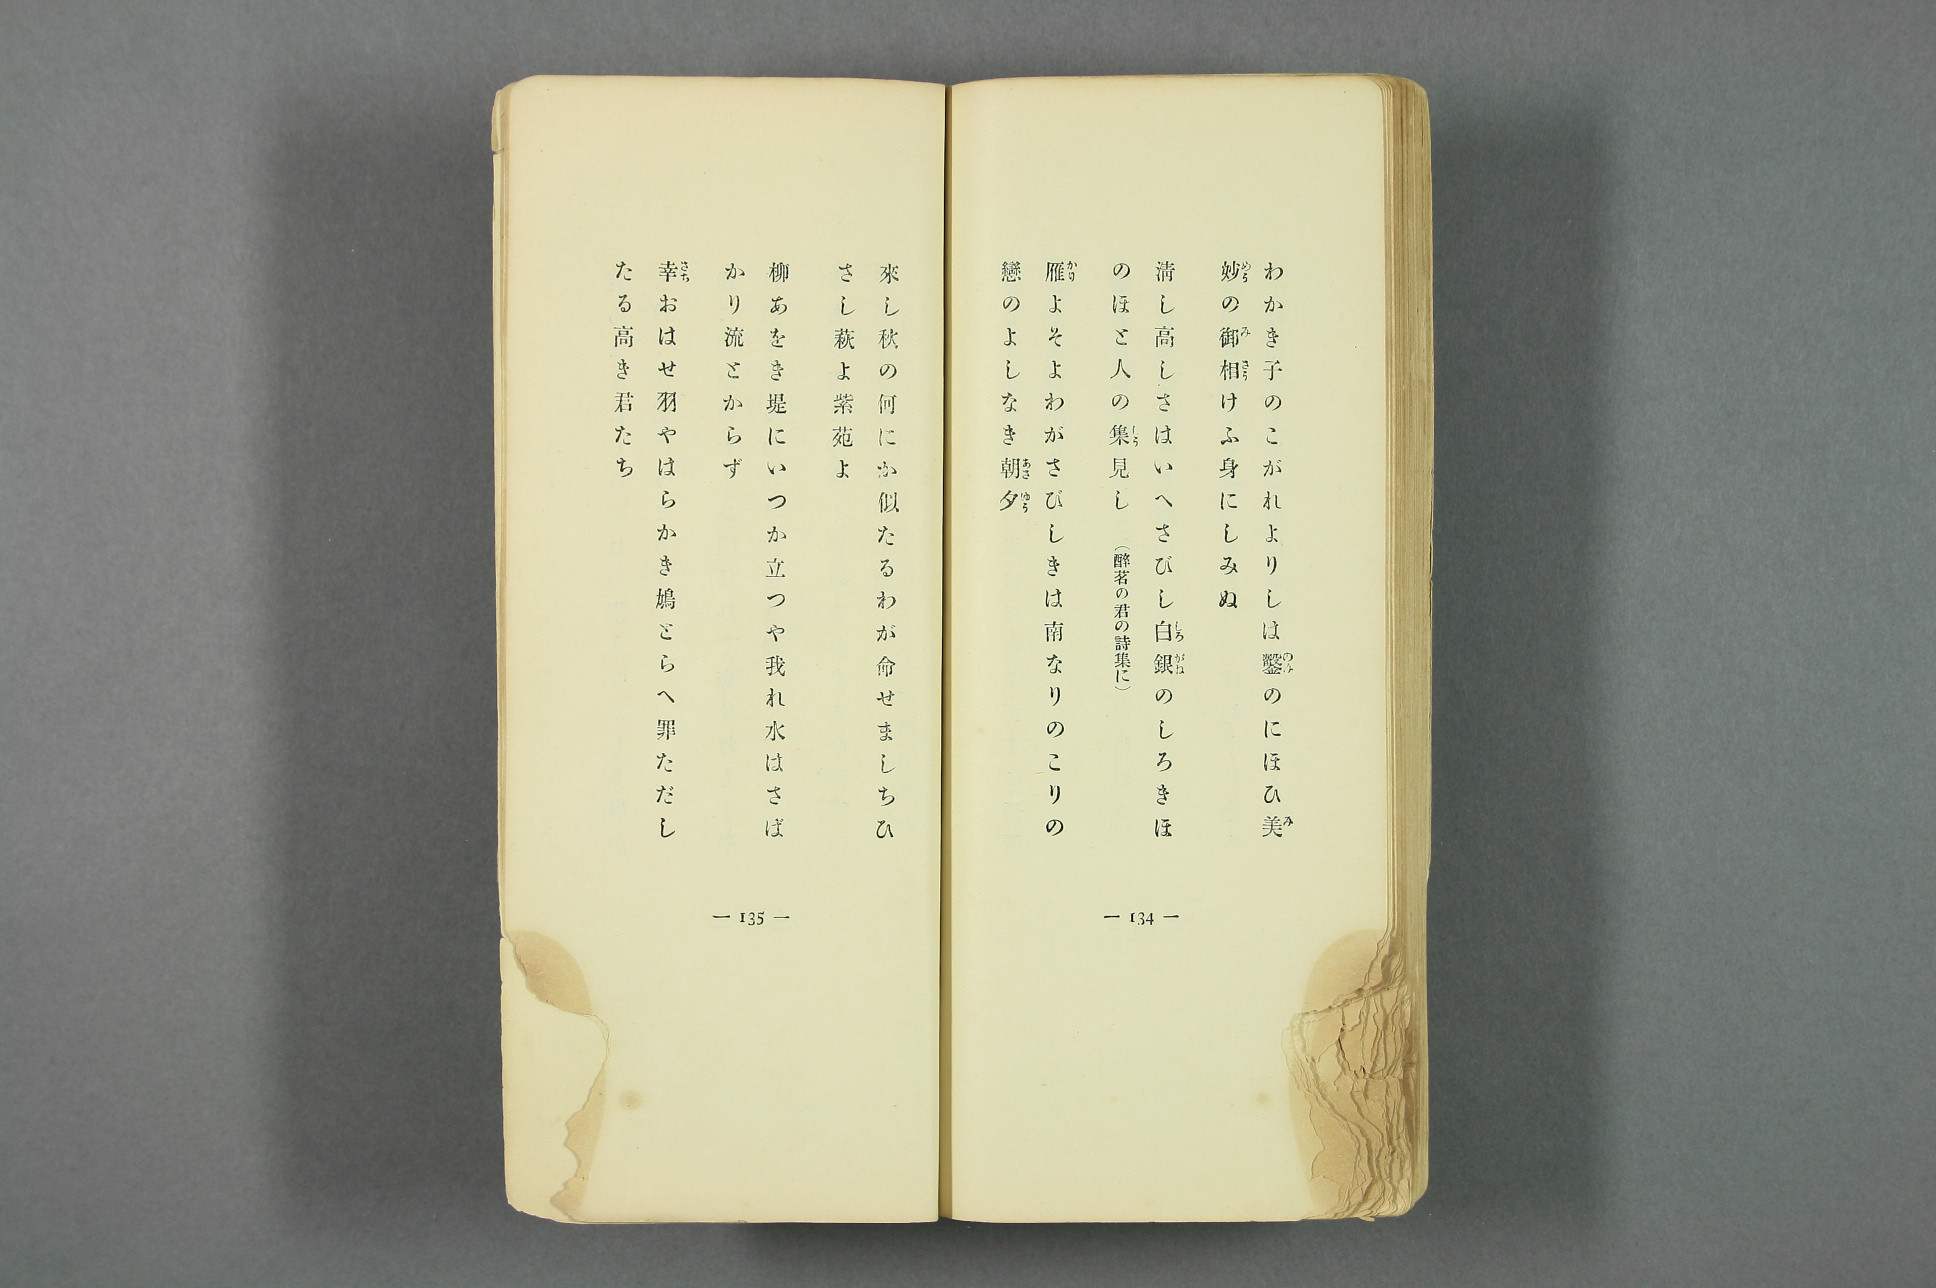 わかき子のこがれよりしは鑿のにほひ美
妙の御相けふ身にしみぬ
淸し高しさはいへさびし白銀のしろきほ
のほと人の集見し（醉茗の君の詩集に）
雁よそよわがさびしきは南なりのこりの
戀のよしなき朝夕
— 134 —
來し秋の何にか似たるわが命せましちひ
さし萩よ紫苑よ
柳あをき堤にいつか立つや我れ水はさば
かり流とからず
幸おはせ羽やはらかき鳩とらへ罪ただし
たる高き君たち
— 135 —